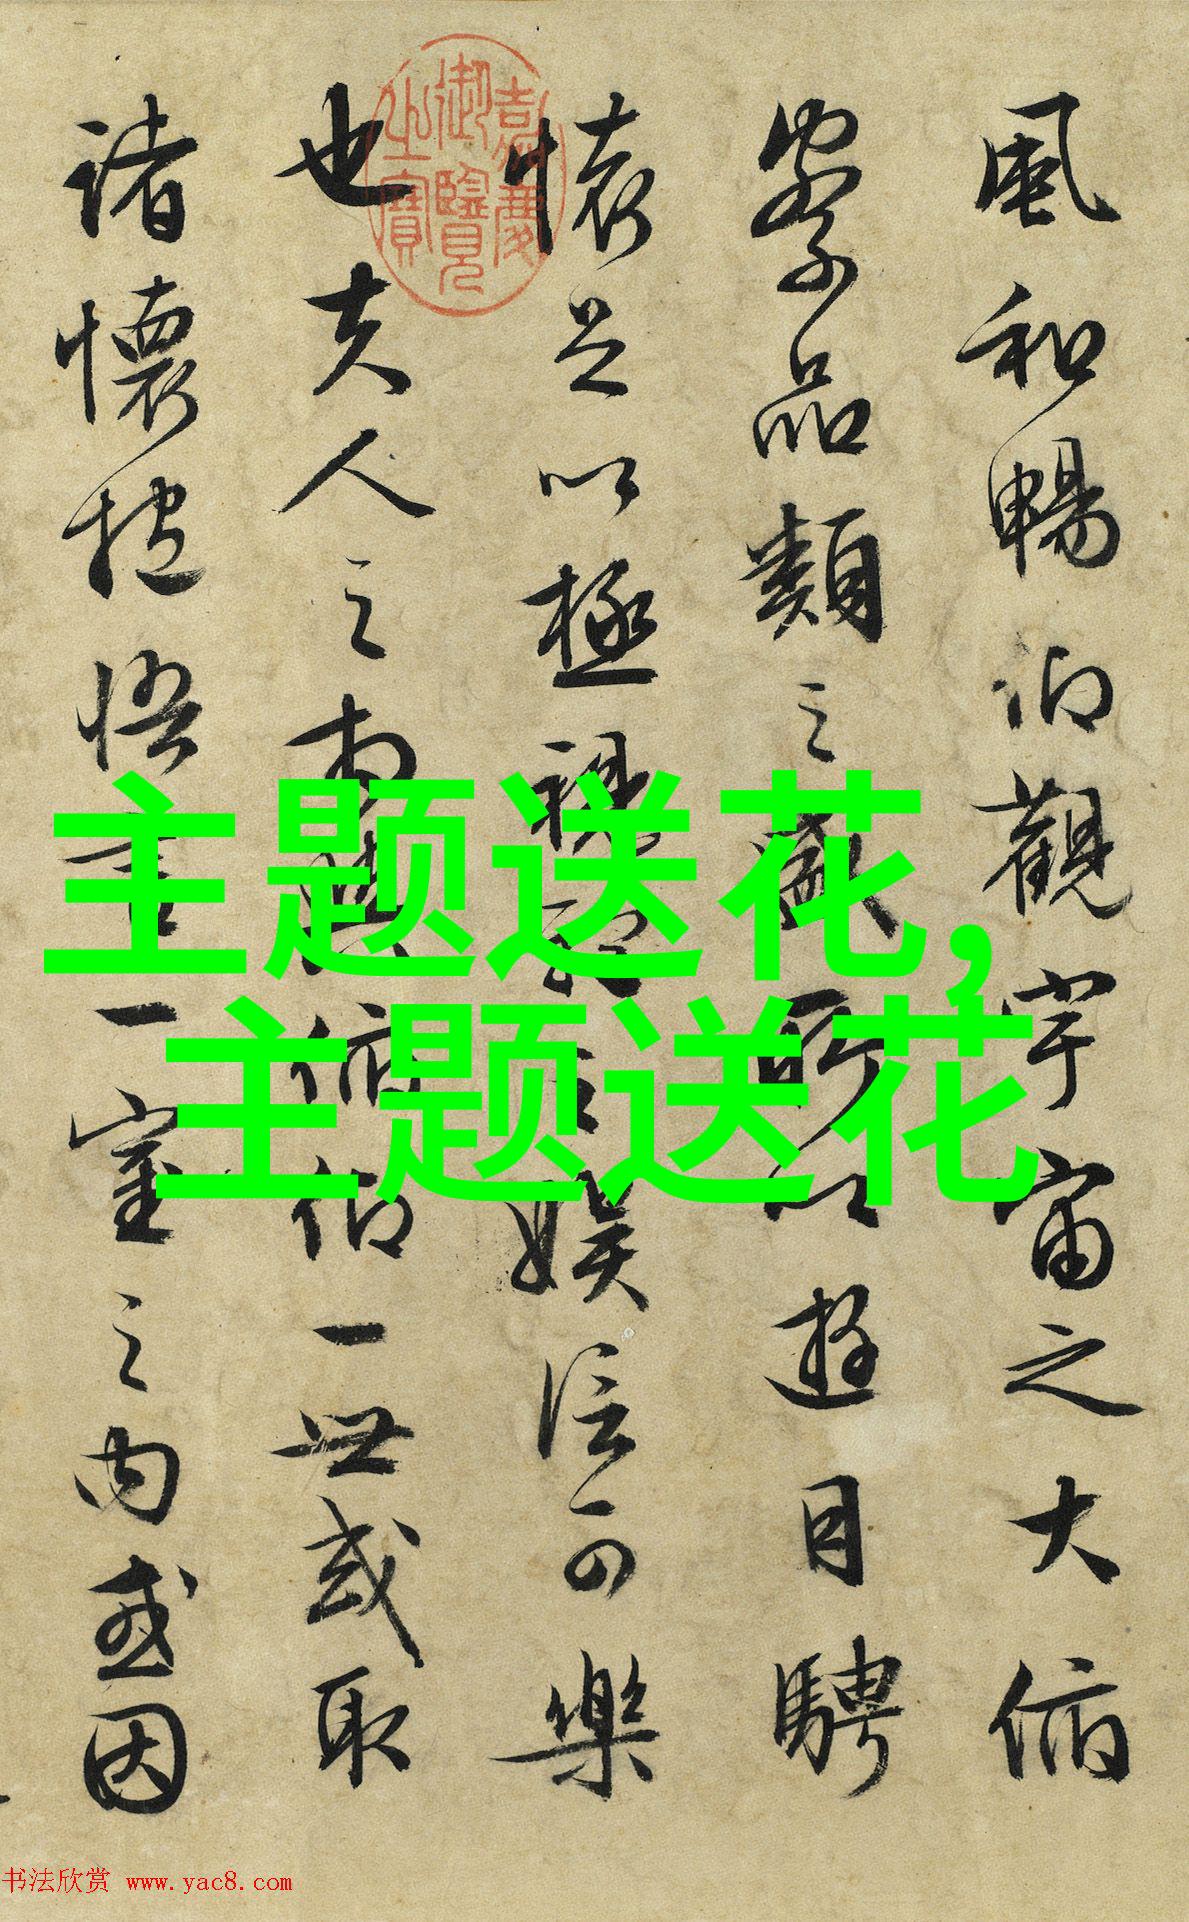 風和暢仰觀宇宙之大俯
察品類之盛所以遊目騁
懷足以極視聽之娛信可樂
也夫人之相與俯仰一世或取
諸懷抱悟言一室之內或因
嘉慶
御覽
之寶
主题送花,
主题送花
书法欣赏 www.yac8.com